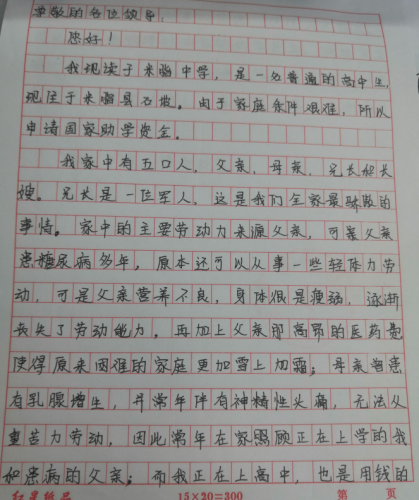 尊敬的各位领导，
您好！
我现读于米脂中学，是一名普通的高中生，
现住于米脂县石坡。由于家庭条件艰难，所以
申请国家助学资金。
我家中有五口人，父亲、母亲、兄长和长
嫂。兄长是一位军人，这是我们全家最骄傲的
事情。家中的主要劳动力来源父亲，可是父亲
患糖尿病多年，原本还可以从事一些轻体力劳
动，可是父亲营养不良，身体很是瘦弱，逐渐
丧失了劳动能力，再加上父亲那高昂的医药费
使得原来困难的家庭更加雪上加霜；母亲当患
有乳腺增生，并常年伴有神经性头痛，无法从
重苦力劳动，因此常年在家照顾正在上学的我
和患病的父亲；而我正在上高中，也是用钱的
15×20=300
第 页